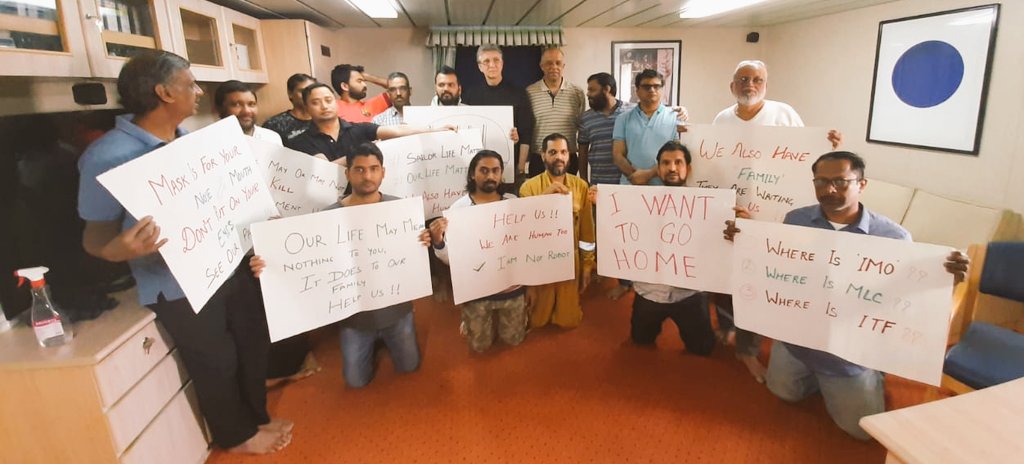 MASK IS FOR YOUR
NOSE / MOUTH
DON'T PUT ON YOUR
EYES
SEE OUR
MAY OR MAY NOT
KILL
OUR LIFE MAY MEAN
NOTHING TO YOU,
IT DOES TO OUR
FAMILY
HELP US !!
SAILOR LIFE
OUR LIFE
ALSO HAVE
HELP US !!
WE ARE HUMAN TOO
✓ I AM NOT ROBOT
I WANT
TO GO
HOME
WE ALSO HAVE
'FAMILY'
THEY ARE WAITING
US
① WHERE IS 'IMO' ??
② WHERE IS MLC ??
③ WHERE IS ITF ??